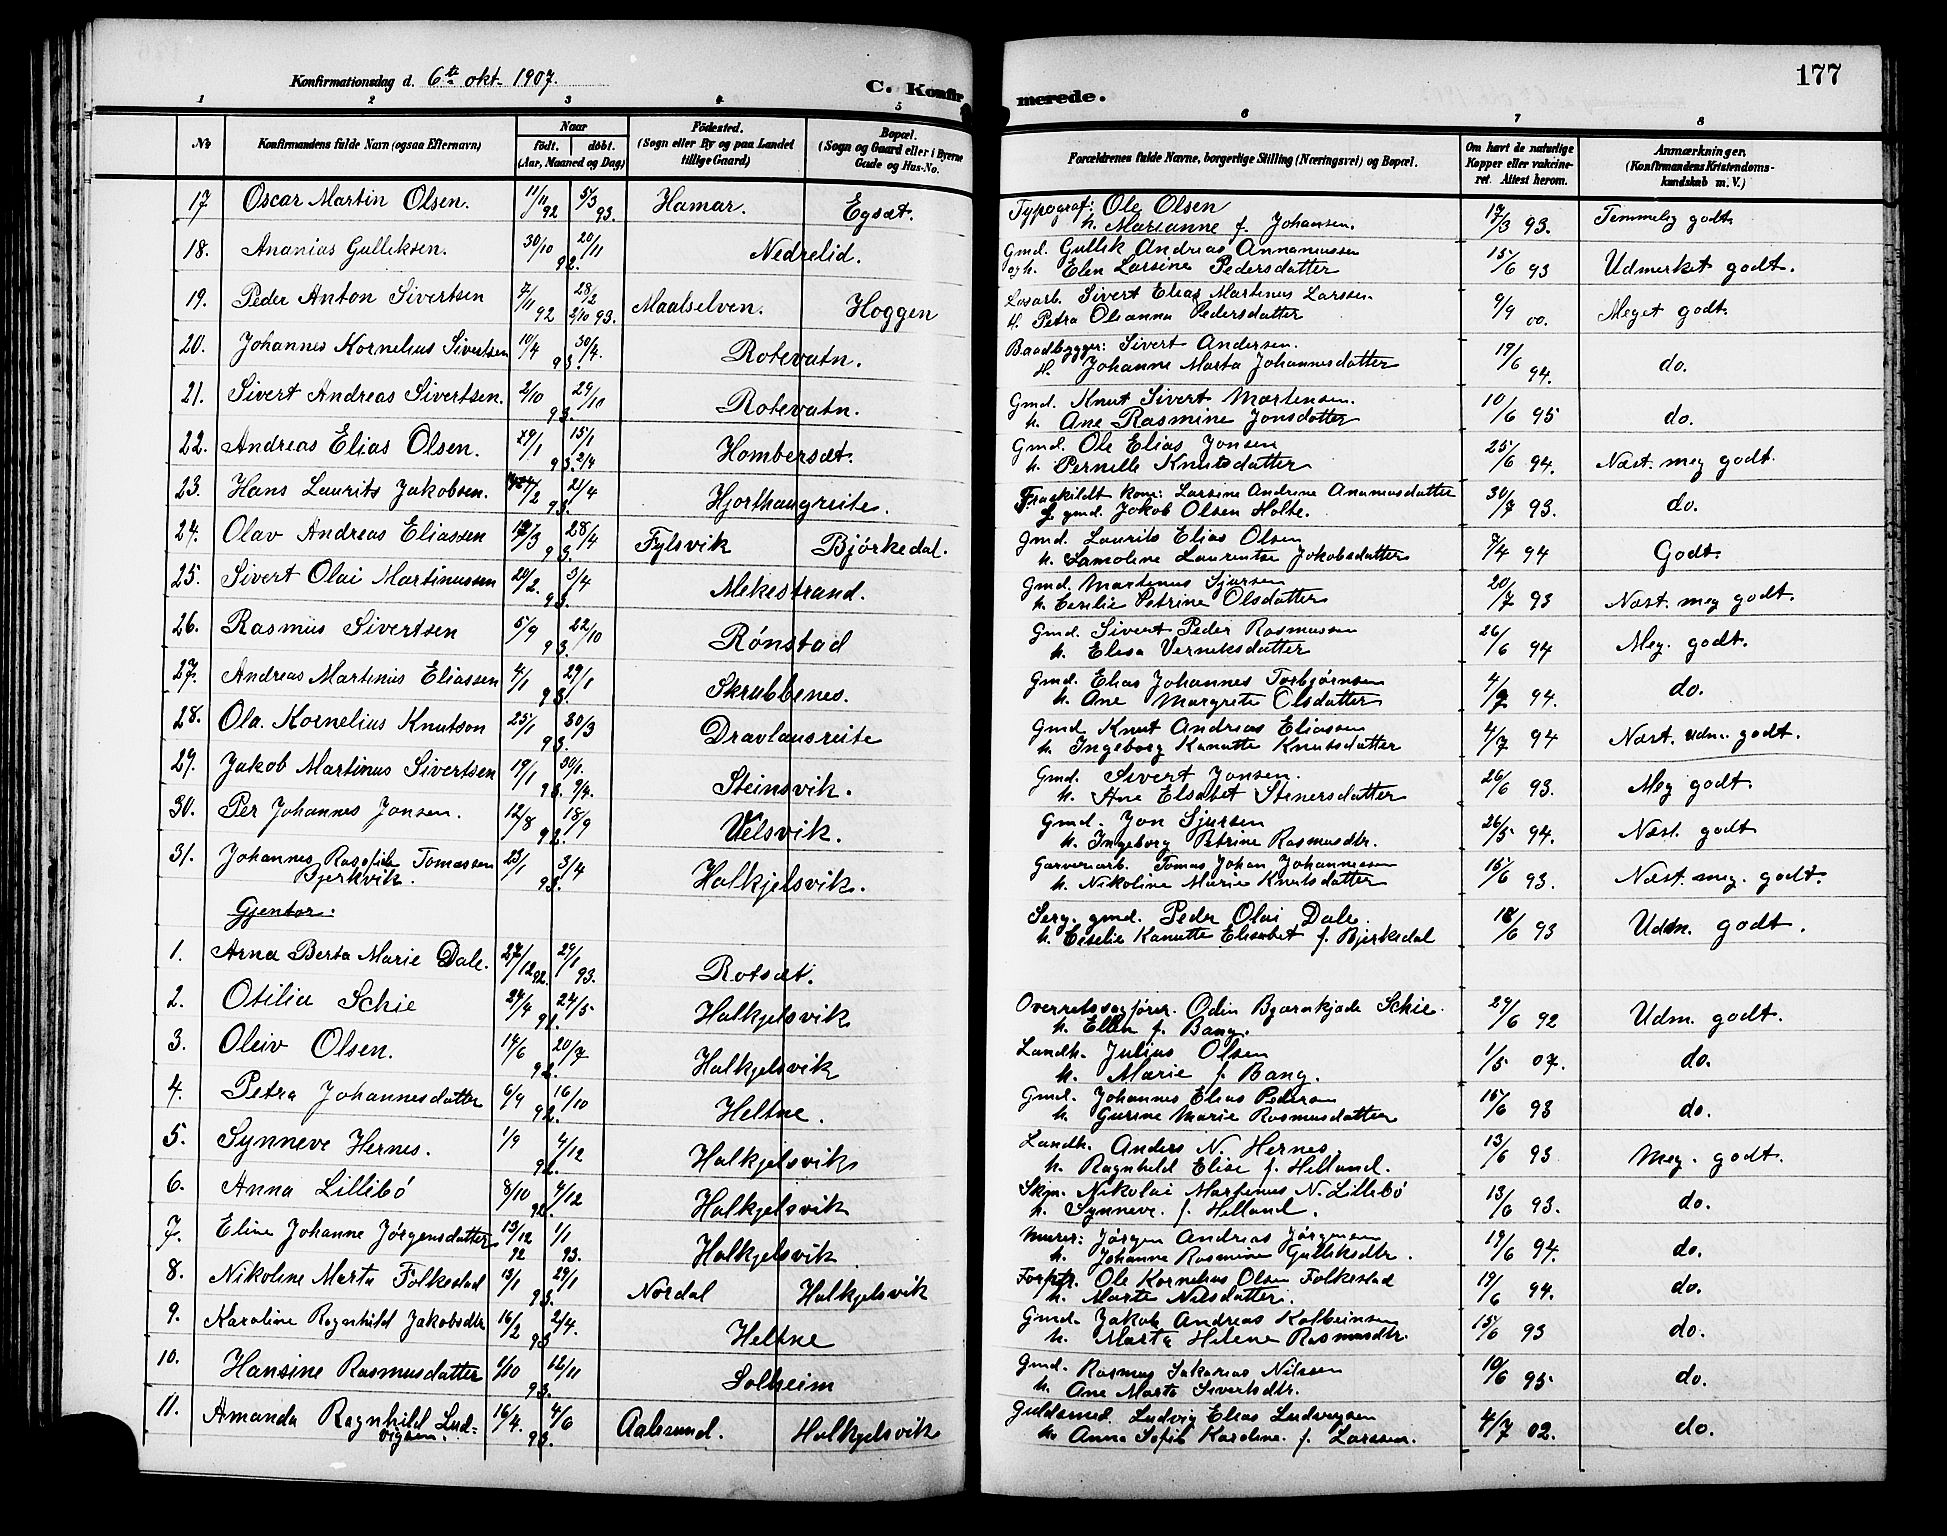 Konfirmationsdag d. 6te okt. 1907.
C. Konfirmerede.
177
1 2 3 4 5 6 7 8
No
Konfirmandens fulde Navn (ogsaa Efternavn)
Naar
født. døbt.
(Aar, Maaned og Dag)
Fødested.
(Sogn eller By og paa Landet tillige Gaard)
Bopæl.
(Sogn og Gaard eller i Byerne Gade og Hus-No.
Forældrenes fulde Navne, borgerlige Stilling (Næringsvei) og Bopæl.
Om havt de naturlige Kopper eller vakcineret. Attest herom.
Anmærkninger.
(Konfirmandens Kristendomskundskab m. V.)
17 Oscar Martin Olsen. 11/11 92 5/3 93. Hamar. Egsæt. Typograf: Ole Olsen h. Marianne f. Johansen. 17/3 93. Temmelig godt.
18. Ananias Gulliksen. 30/10 20/11 92. Nedrelid. Gmd. Gullik Andreas Annanussen og h. Elen Larsine Pedersdatter 15/6 93 Udmerket godt.
19. Peder Anton Sivertsen 7/11 92 28/2 2/10 93. Maalselven. Hoggen Løsarb. Sivert Elias Martinus Larssen H. Petra Oleanna Pedersdatter 9/9 00. Meget godt.
20. Johannes Kornelius Sivertsen 10/4 30/4. 93. Rotevatn. Baadbygger: Sivert Andersen. H. Johanne Marta Johannesdatter 19/6 94. do.
21. Sivert Andreas Sivertsen. 2/10 29/10 93. Rotevatn. Gmd. Knut Sivert Martensen. h. Ane Rasmine Jonsdatter 10/6 95 do.
22. Andreas Elias Olsen. 29/1 15/1 93. 2/4 Hombersæt. Gmd. Ole Elias Jonsen h. Pernille Knutsdatter 25/6 94. Næst. meg godt.
23. Hans Laurits Jakobsen. /2 21/4 93. Hjorthaugreite. Fraskildt kone: Larsine Andrine Ananiasdatter f. gmd. Jakob Olsen Holte. 30/7 93. do.
24. Olav Andreas Eliassen 19/3 28/4 93. Fylsvik Bjørkedal. Gmd. Laurits Elias Olsen h. Lamoline Laurentse Jakobsdatter 8/4 94 Godt.
25. Sivert Olai Martinussen 20/2. 3/4 93. Mekestrand. Gmd. Martinus Sjursen h. Cecilie Petrine Olsdatter 20/7 93 Næst. meg godt.
26. Rasmus Sivertsen 5/9 22/10 93. Rønstad Gmd. Sivert Peder Rasmussen h. Elisa Verniksdatter 26/6 94 Meg. godt.
27. Andreas Martinus Eliassen 4/1 29/1 93. Skrubbenes. Gmd. Elias Johannes Torbjørnsen h. Ane Margrete Olsdatter 4/7 94. do.
28. Ola. Kornelius Knutson 25/1 30/3 93. Dravlausreite Gmd Knut Andreas Eliassen h. Ingeborg Kanutte Knutsdatter 4/7 94 Næst. udm. godt.
29. Jakob Martinus Sivertsen 19/1 30/1. 93. 9/4. Steinsvik. Gmd. Sivert Jonsen. h. Ane Elsebet Steinersdatter 26/6 93. Meg godt.
30. Per Johannes Jonsen. 12/8 18/9 92. Velsvik. Gmd. Jon Sjursen h. Ingeborg Petrine Rasmusdtr. 26/5 94. Næst. godt
31. Johannes Tomassen Bjerkvik. 23/1 3/4 93. Halkjelsvik. Garveriarb. Tomas Johan Johannessen h. Nikoline Marie Knutsdatter 15/6 93. Næst. meg. godt.
Gjentor:
1. Arna Berta Marie Dale. 27/12 92. 29/1 93. Rotsæt. Serg. gmd. Peder Olai Dale. h. Ceselie Kanutte Elisabet f. Bjerkedal 18/6 93 Udm. godt.
2. Otilia Schie 24/4 24/5 92. Halkjelsvik Overretssagfører. Odin Bjærnkjade Schie. h. Ellen f. Bang. 29/6 92 Udm. godt.
3. Oleiv Olsen. 14/6 20/7 92. Halkjelsvik Landh. Julius Olsen h. Marie f. Bang. 1/5 07. do.
4. Petra Johannesdatter 6/9 16/10 92. Heltne. Gmd. Johannes Elias Pedersen h. Gurine Marie Rasmusdatter 15/6 93 do.
5. Synneve Hernes. 1/9 4/12 92. Halkjelsvik Landh. Anders N. Hernes, h. Ragnhild Elise f. Helland. 13/6 93 Meg. godt.
6. Anna Lillebø 8/10 4/12 92. Halkjelsvik Skjm. Nikolai Martinus N. Lillebø h. Synneve. f. Helland. 13/6 93. do.
7. Eline Johanne Jørgensdatter 13/12 92 1/1 93. Halkjelsvik Murer: Jørgen Andreas Jørgensen h. Johanne Rasmine Gulliksdtr. 19/6 94. do.
8. Nikoline Marta Folkestad 13/1 29/1 93. Nordal Halkjelsvik Forptr. Ole Kornelius Olsen Folkestad h. Marte Nilsdatter. 19/6 94. do.
9. Karoline Ragnhild Jakobsdtr 16/2 2/4. 93 Heltne Gmd. Jakob Andreas Kolbeinsen h. Marta Helene Rasmusdtr. 15/6 93 do.
10. Hansine Rasmusdatter 1/10 12/11 93. Solheim Gmd. Rasmus Sakarias Nilssen h. Ane Marta Sivertsdtr. 10/6 95 do.
11. Amanda Ragnhild Ludvigsen. 16/4. 4/6 93. Aalesund. Halkjelsvik Guldsmed. Ludvig Elias Ludvigsen h. Anna Sofie Karoline. f. Larssen. 4/7 02. do.